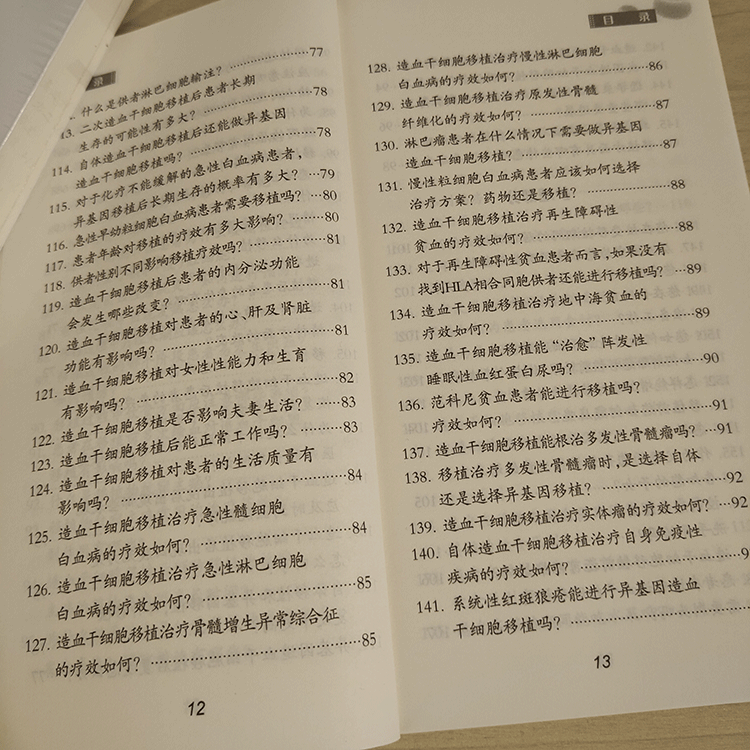 录
什么是供者淋巴细胞输注？ ……………… 77
二次造血干细胞移植后患者长期
生存的可能性有多大？ ……………… 78
114. 自体造血干细胞移植后还能做异基因
造血干细胞移植吗？ ……………… 78
115. 对于化疗不能缓解的急性白血病患者，
异基因移植后长期生存的概率有多大？ …79
116. 急性早幼粒细胞白血病患者需要移植吗？ …80
117. 患者年龄对移植的疗效有多大影响？ ……80
118. 供者性别不同影响移植疗效吗？ …………81
119. 造血干细胞移植后患者的内分泌功能
会发生哪些改变？ ……………… 81
120. 造血干细胞移植对患者的心、肝及肾脏
功能有影响吗？ ……………… 81
121. 造血干细胞移植对女性性能力和生育
有影响吗？ ……………… 82
122. 造血干细胞移植是否影响夫妻生活？ ……83
123. 造血干细胞移植后能正常工作吗？ ………83
124. 造血干细胞移植对患者的生活质量有
影响吗？ ……………… 84
125. 造血干细胞移植治疗急性髓细胞
白血病的疗效如何？ ……………… 84
126. 造血干细胞移植治疗急性淋巴细胞
白血病的疗效如何？ ……………… 85
127. 造血干细胞移植治疗骨髓增生异常综合征
的疗效如何？ ……………… 85
12
目 录
128. 造血干细胞移植治疗慢性淋巴细胞
白血病的疗效如何？ ……………… 86
129. 造血干细胞移植治疗原发性骨髓
纤维化的疗效如何？ ……………… 87
130. 淋巴瘤患者在什么情况下需要做异基因
造血干细胞移植？ ……………… 87
131. 慢性粒细胞白血病患者应该如何选择
治疗方案？药物还是移植？ ……………… 88
132. 造血干细胞移植治疗再生障碍性
贫血的疗效如何？ ……………… 88
133. 对于再生障碍性贫血患者而言，如果没有
找到HLA相合同胞供者还能进行移植吗？ …89
134. 造血干细胞移植治疗地中海贫血的
疗效如何？ ……………… 89
135. 造血干细胞移植能“治愈”阵发性
睡眠性血红蛋白尿吗？ ……………… 90
136. 范科尼贫血患者能进行移植吗？
疗效如何？ ……………… 91
137. 造血干细胞移植能根治多发性骨髓瘤吗？ …91
138. 移植治疗多发性骨髓瘤时，是选择自体
还是选择异基因移植？ ……………… 92
139. 造血干细胞移植治疗实体瘤的疗效如何？ …92
140. 自体造血干细胞移植治疗自身免疫性
疾病的疗效如何？ ………………
141. 系统性红斑狼疮能进行异基因造血
干细胞移植吗？ ………………
13